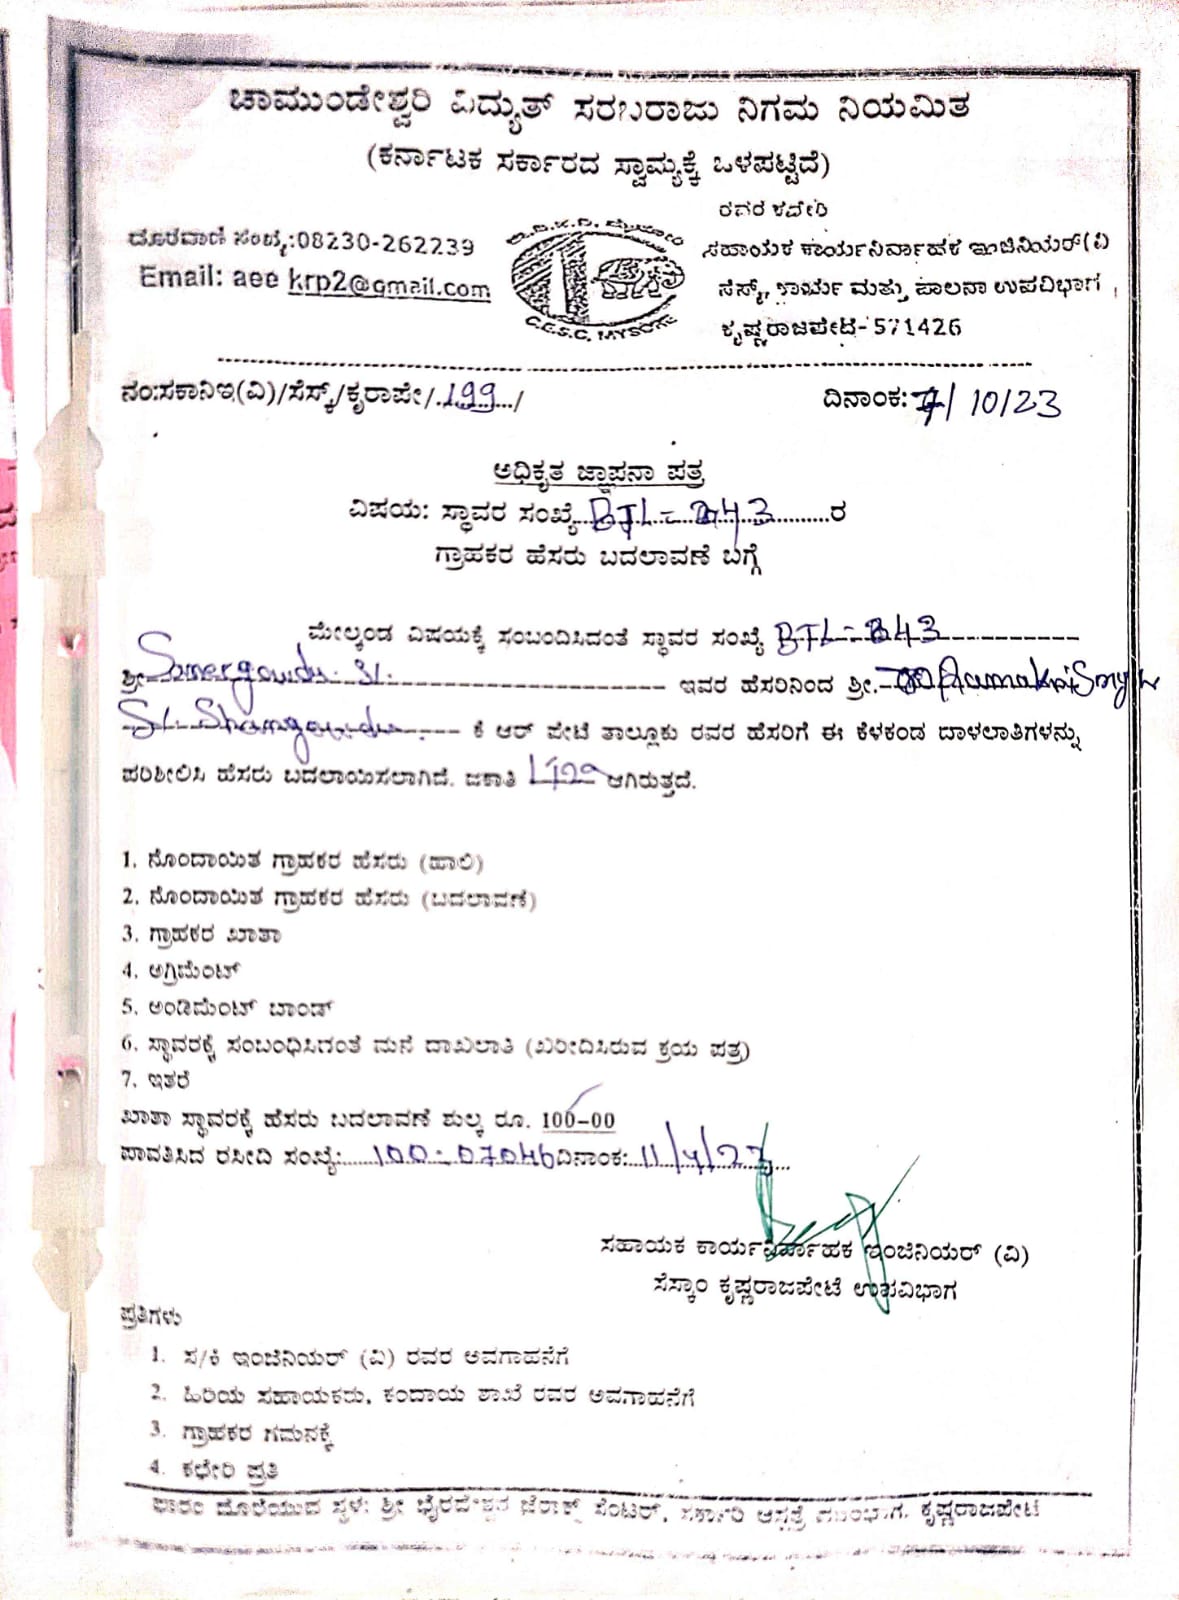 ಚಾಮುಂಡೇಶ್ವರಿ ವಿದ್ಯುತ್ ಸರಬರಾಜು ನಿಗಮ ನಿಯಮಿತ
(ಕರ್ನಾಟಕ ಸರ್ಕಾರದ ಸ್ವಾಮ್ಯಕ್ಕೆ ಒಳಪಟ್ಟಿದೆ)
ರವರ ಕಛೇರಿ
ದೂರವಾಣಿ ಸಂಖ್ಯೆ:08230-262239
ಸಹಾಯಕ ಕಾರ್ಯನಿರ್ವಾಹಕ ಇಂಜಿನಿಯರ್(ವಿ
Email: aee krp2@gmail.com
ಸೆಸ್ಕ್, ಕಾರ್ಯ ಮತ್ತು ಪಾಲನಾ ಉಪವಿಭಾಗ,
C.E.S.C. MYSORE
ಕೃಷ್ಣರಾಜಪೇಟೆ-571426
ನಂ:ಸಕಾನಿಇ(ವಿ)/ಸೆಸ್ಕ್/ಕೃರಾಪೇ/.199.../
ದಿನಾಂಕ: /10/23
ಅಧಿಕೃತ ಜ್ಞಾಪನಾ ಪತ್ರ
ವಿಷಯ: ಸ್ಥಾವರ ಸಂಖ್ಯೆ BTL-243 ರ
ಗ್ರಾಹಕರ ಹೆಸರು ಬದಲಾವಣೆ ಬಗ್ಗೆ
ಮೇಲ್ಕಂಡ ವಿಷಯಕ್ಕೆ ಸಂಬಂದಿಸಿದಂತೆ ಸ್ಥಾವರ ಸಂಖ್ಯೆ BTL-243
ಶ್ರೀ ಇವರ ಹೆಸರಿನಿಂದ ಶ್ರೀ.
ಕೆ ಆರ್ ಪೇಟೆ ತಾಲ್ಲೂಕು ರವರ ಹೆಸರಿಗೆ ಈ ಕೆಳಕಂಡ ದಾಳಲಾತಿಗಳನ್ನು
ಪರಿಶೀಲಿಸಿ ಹೆಸರು ಬದಲಾಯಿಸಲಾಗಿದೆ. ಜಕಾತಿ ಆಗಿರುತ್ತದೆ.
1. ನೊಂದಾಯಿತ ಗ್ರಾಹಕರ ಹೆಸರು (ಹಾಲಿ)
2. ನೊಂದಾಯಿತ ಗ್ರಾಹಕರ ಹೆಸರು (ಬದಲಾವಣೆ)
3. ಗ್ರಾಹಕರ ಖಾತಾ
4. ಅಗ್ರಿಮೆಂಟ್
5. ಅಂಡಿಮೆಂಟ್ ಬಾಂಡ್
6. ಸ್ಥಾವರಕ್ಕೆ ಸಂಬಂಧಿಸಿದಂತೆ ಮನೆ ದಾಖಲಾತಿ (ಖರೀದಿಸಿರುವ ಕ್ರಯ ಪತ್ರ)
7. ಇತರೆ
ಖಾತಾ ಸ್ಥಾವರಕ್ಕೆ ಹೆಸರು ಬದಲಾವಣೆ ಶುಲ್ಕ ರೂ. 100-00
ಪಾವತಿಸಿದ ರಸೀದಿ ಸಂಖ್ಯೆ: 100-07046 ದಿನಾಂಕ: 11/
ಸಹಾಯಕ ಕಾರ್ಯನಿರ್ವಾಹಕ ಇಂಜಿನಿಯರ್ (ವಿ)
ಸೆಸ್ಕಾಂ ಕೃಷ್ಣರಾಜಪೇಟೆ ಉಪವಿಭಾಗ
ಪ್ರತಿಗಳು
1. ಸ/ಕಿ ಇಂಜಿನಿಯರ್ (ವಿ) ರವರ ಅವಗಾಹನೆಗೆ
2. ಹಿರಿಯ ಸಹಾಯಕರು, ಕಂದಾಯ ಶಾಖೆ ರವರ ಅವಗಾಹನೆಗೆ
3. ಗ್ರಾಹಕರ ಗಮನಕ್ಕೆ
4. ಕಛೇರಿ ಪ್ರತಿ
ಫಾರಂ ದೊರೆಯುವ ಸ್ಥಳ: ಶ್ರೀ ಭೈರವೇಶ್ವರ ಜೆರಾಕ್ಸ್ ಸೆಂಟರ್, ಸರ್ಕಾರಿ ಆಸ್ಪತ್ರೆ ಕೃಷ್ಣರಾಜಪೇಟೆ